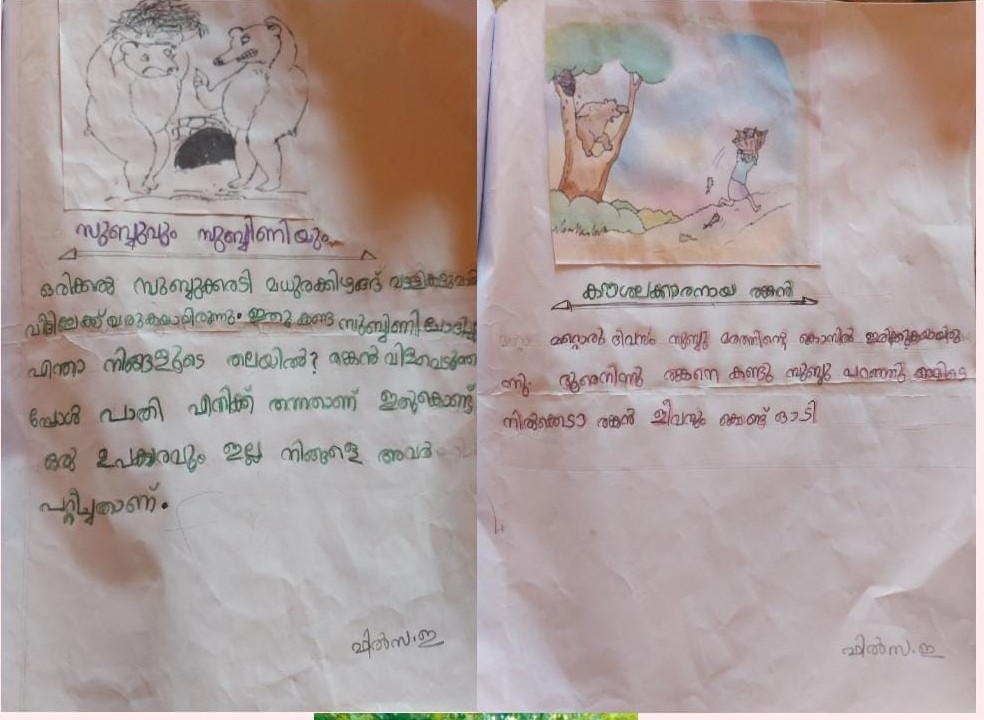 സുബ്ബുവും സുബ്ബിണിയും
ഒരിക്കൽ സുബ്ബുക്കരടി മധുരക്കിഴങ്ങ് വള്ളികളുമായി
വീട്ടിലേക്ക് വരുകയായിരുന്നു. ഇതു കണ്ട സുബ്ബിണി ചോദിച്ചു
എന്താ നിങ്ങളുടെ തലയിൽ? രങ്കൻ വിളവെടുത്ത
പ്പോൾ പാതി എനിക്ക് തന്നതാണ് ഇതുകൊണ്ട്
ഒരു ഉപകാരവും ഇല്ല നിങ്ങളെ അവർ
പറ്റിച്ചതാണ്.
ഷിൽസ.ഇ
കൗശലക്കാരനായ രങ്കൻ
മറ്റൊരു ദിവസം സുബ്ബു മരത്തിന്റെ കൊമ്പിൽ ഇരിക്കുകയായിരു
ന്നു. ദൂരെനിന്നു രങ്കനെ കണ്ടു സുബ്ബു പറഞ്ഞു അവിടെ
നിൽക്കെടാ രങ്കൻ ജീവനും കൊണ്ട് ഓടി
ഷിൽസ.ഇ